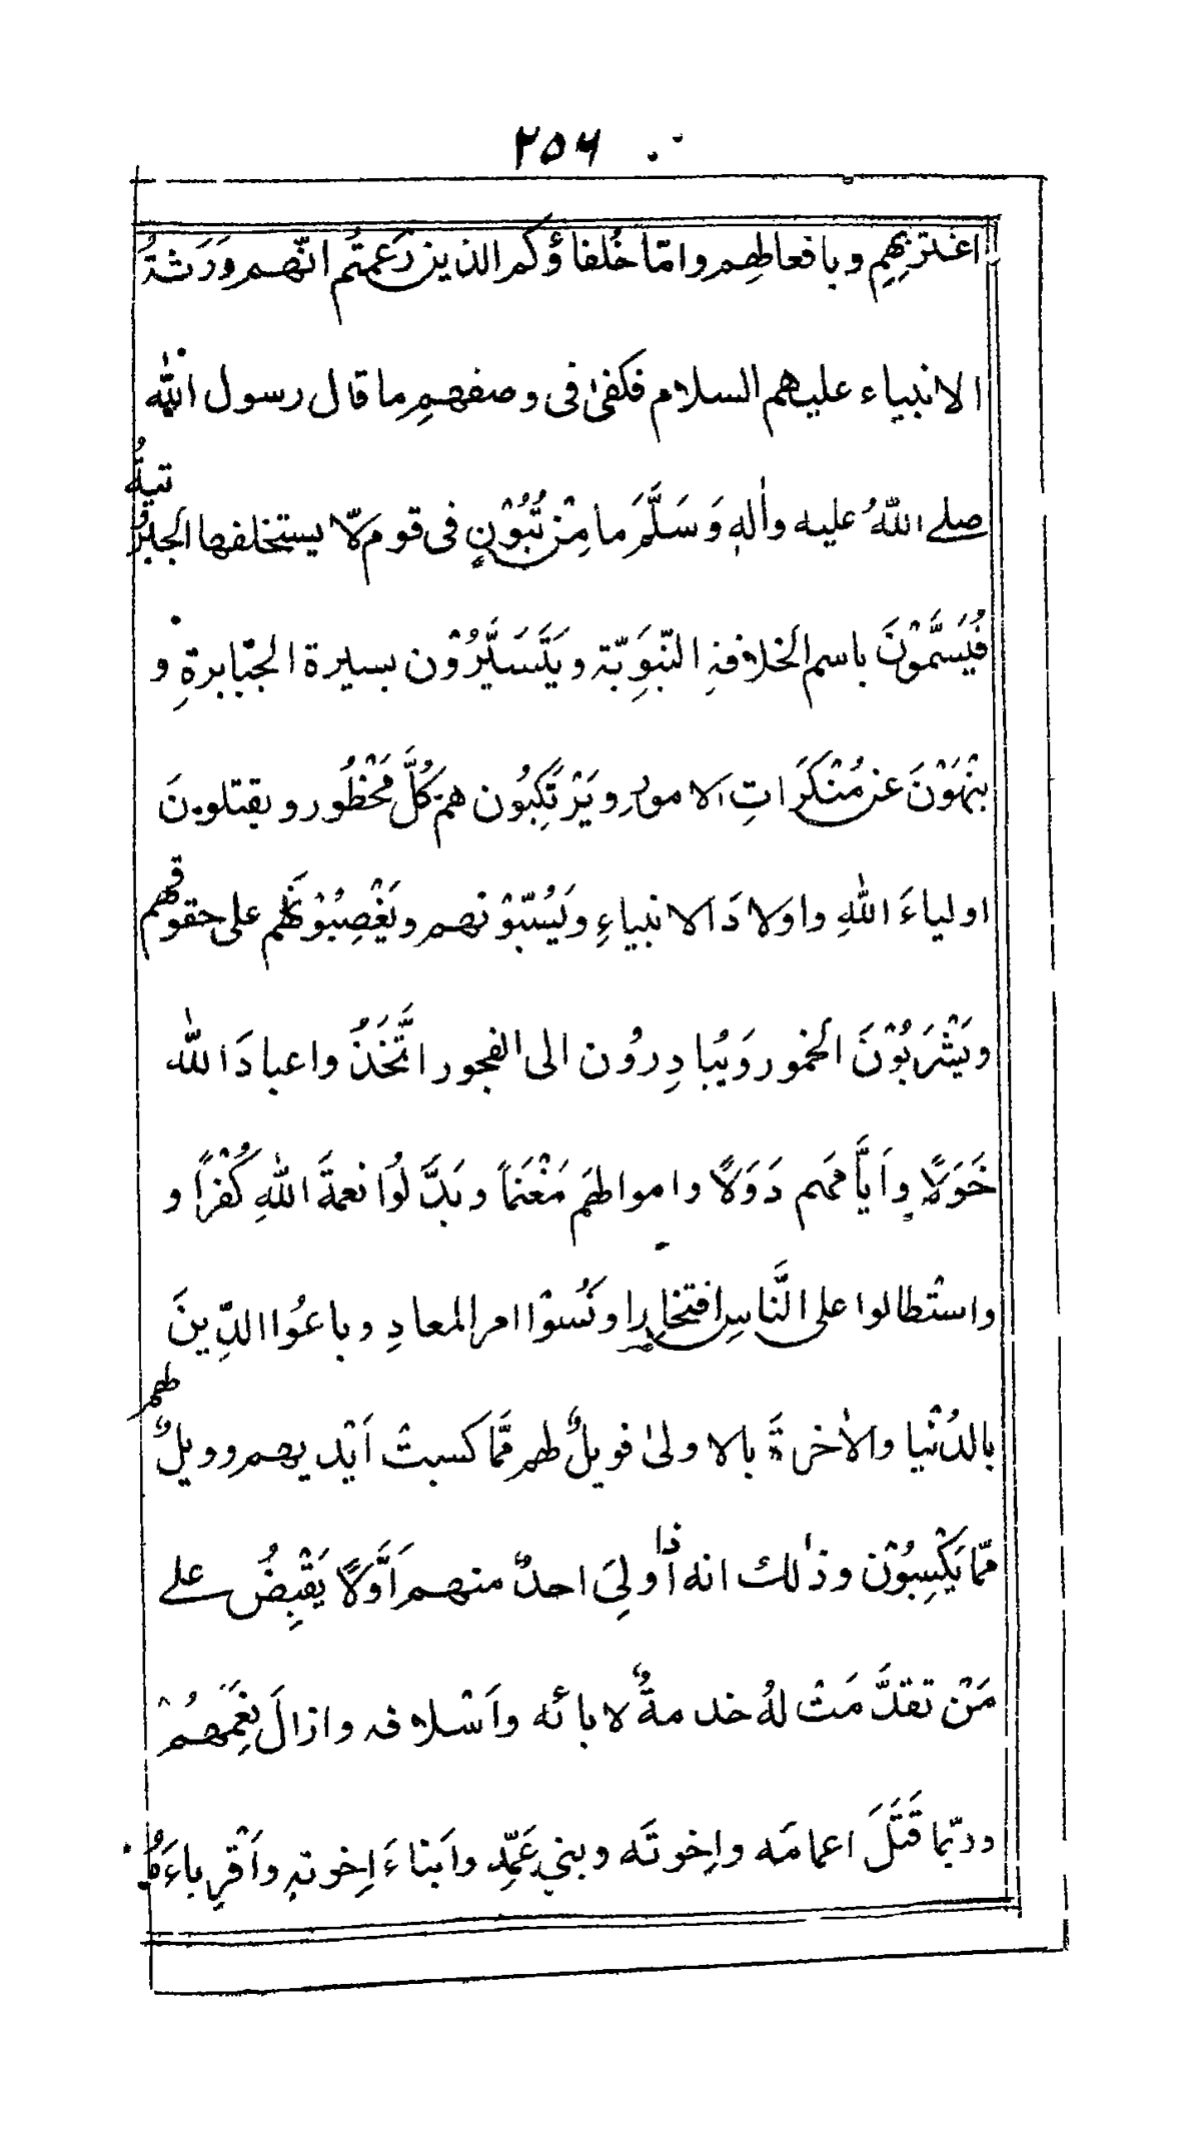 ۲۵۶
اغتر بهم وبافعالهم وامّا خُلفاؤكم الذين زَعمتُم انّهم وَرَثةُ
الانبياء عليهم السلام فكفىٰ فى وصفهم ما قال رسول الله
صلے اللهُ عليه واٰلهٖ وَسَلَّمَ ما مِنْ نُبُوَّةٍ فى قوم الّا يستخلفها الجبرُوتيةُ
فَيُسَمَّوْنَ باسم الخلافةِ النّبَوِيّة ويَتَسَيَّرُوْن بسيرة الجبّابرةِ و
ينْهَوْنَ عن مُنْكَرَاتِ الامور ويَرْتَكِبُون هم كُلَّ مَحْظُور ويقتلونَ
اولياءَ اللهِ واولادَ الانبياءِ ويَسُبّوْنهم ويَغْصِبُوْنَهُم على حقوقهم
ويَشْرَبُوْنَ الخمور وَيُبادِرُون الى الفجور اتَّخَذُوا عبادَ الله
خَوَلًا وايَّامهَم دَوَلًا واموالهَم مَغْنَماً وبَدَّلُوا نعمةَ اللهِ كُفْراً و
واستطالوا على النَّاسِ افتخارا ونَسُوْا امر المعادِ وباعُوا الدِّينَ
بالدُنْيا والاٰخرةَ بالاولىٰ فويلٌ لهم ممَّا كسبتْ اَيْديهم وويلٌ لهم
ممّا يَكْسِبُوْن وذٰلك انه اذا وليَ احدٌ منهم اَوَّلًا يَقْبِضُ علے
مَنْ تقدَّمَتْ لهُ خدمةٌ لابائه واَسْلافه وازالَ نِعَمَهُمْ
وربّما قَتَلَ اعمامَه واِخوتَه وبنى عَمِّه وابناءَ اِخوته واَقْرِباءَهُ